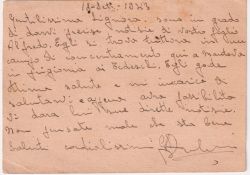 13-Sett.-1943
Gentilissima Signora, sono in grado
di darvi precise notizie di vostro figlio
Alfredo. Egli si trova tuttora in un
campo di concentramento qui a Mantova
in prigionia ai Tedeschi. Egli gode
ottima salute e mi incarica di
salutarvi e appena avrà possibilità
vi darà lui
Non pensate male che sta bene
Saluti cordialissimi